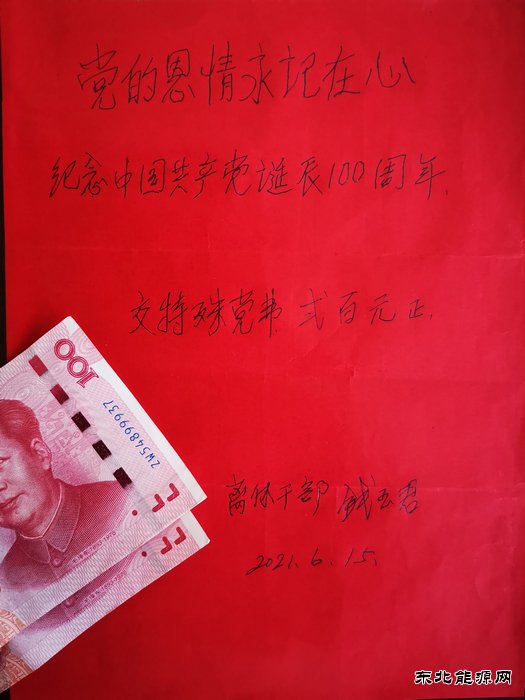 党的恩情永记在心
纪念中国共产党诞辰100周年.
交特殊党费 弍百元正.
100
ZW54899937
离休干部 钱玉君
2021.6.15.
东北能源网